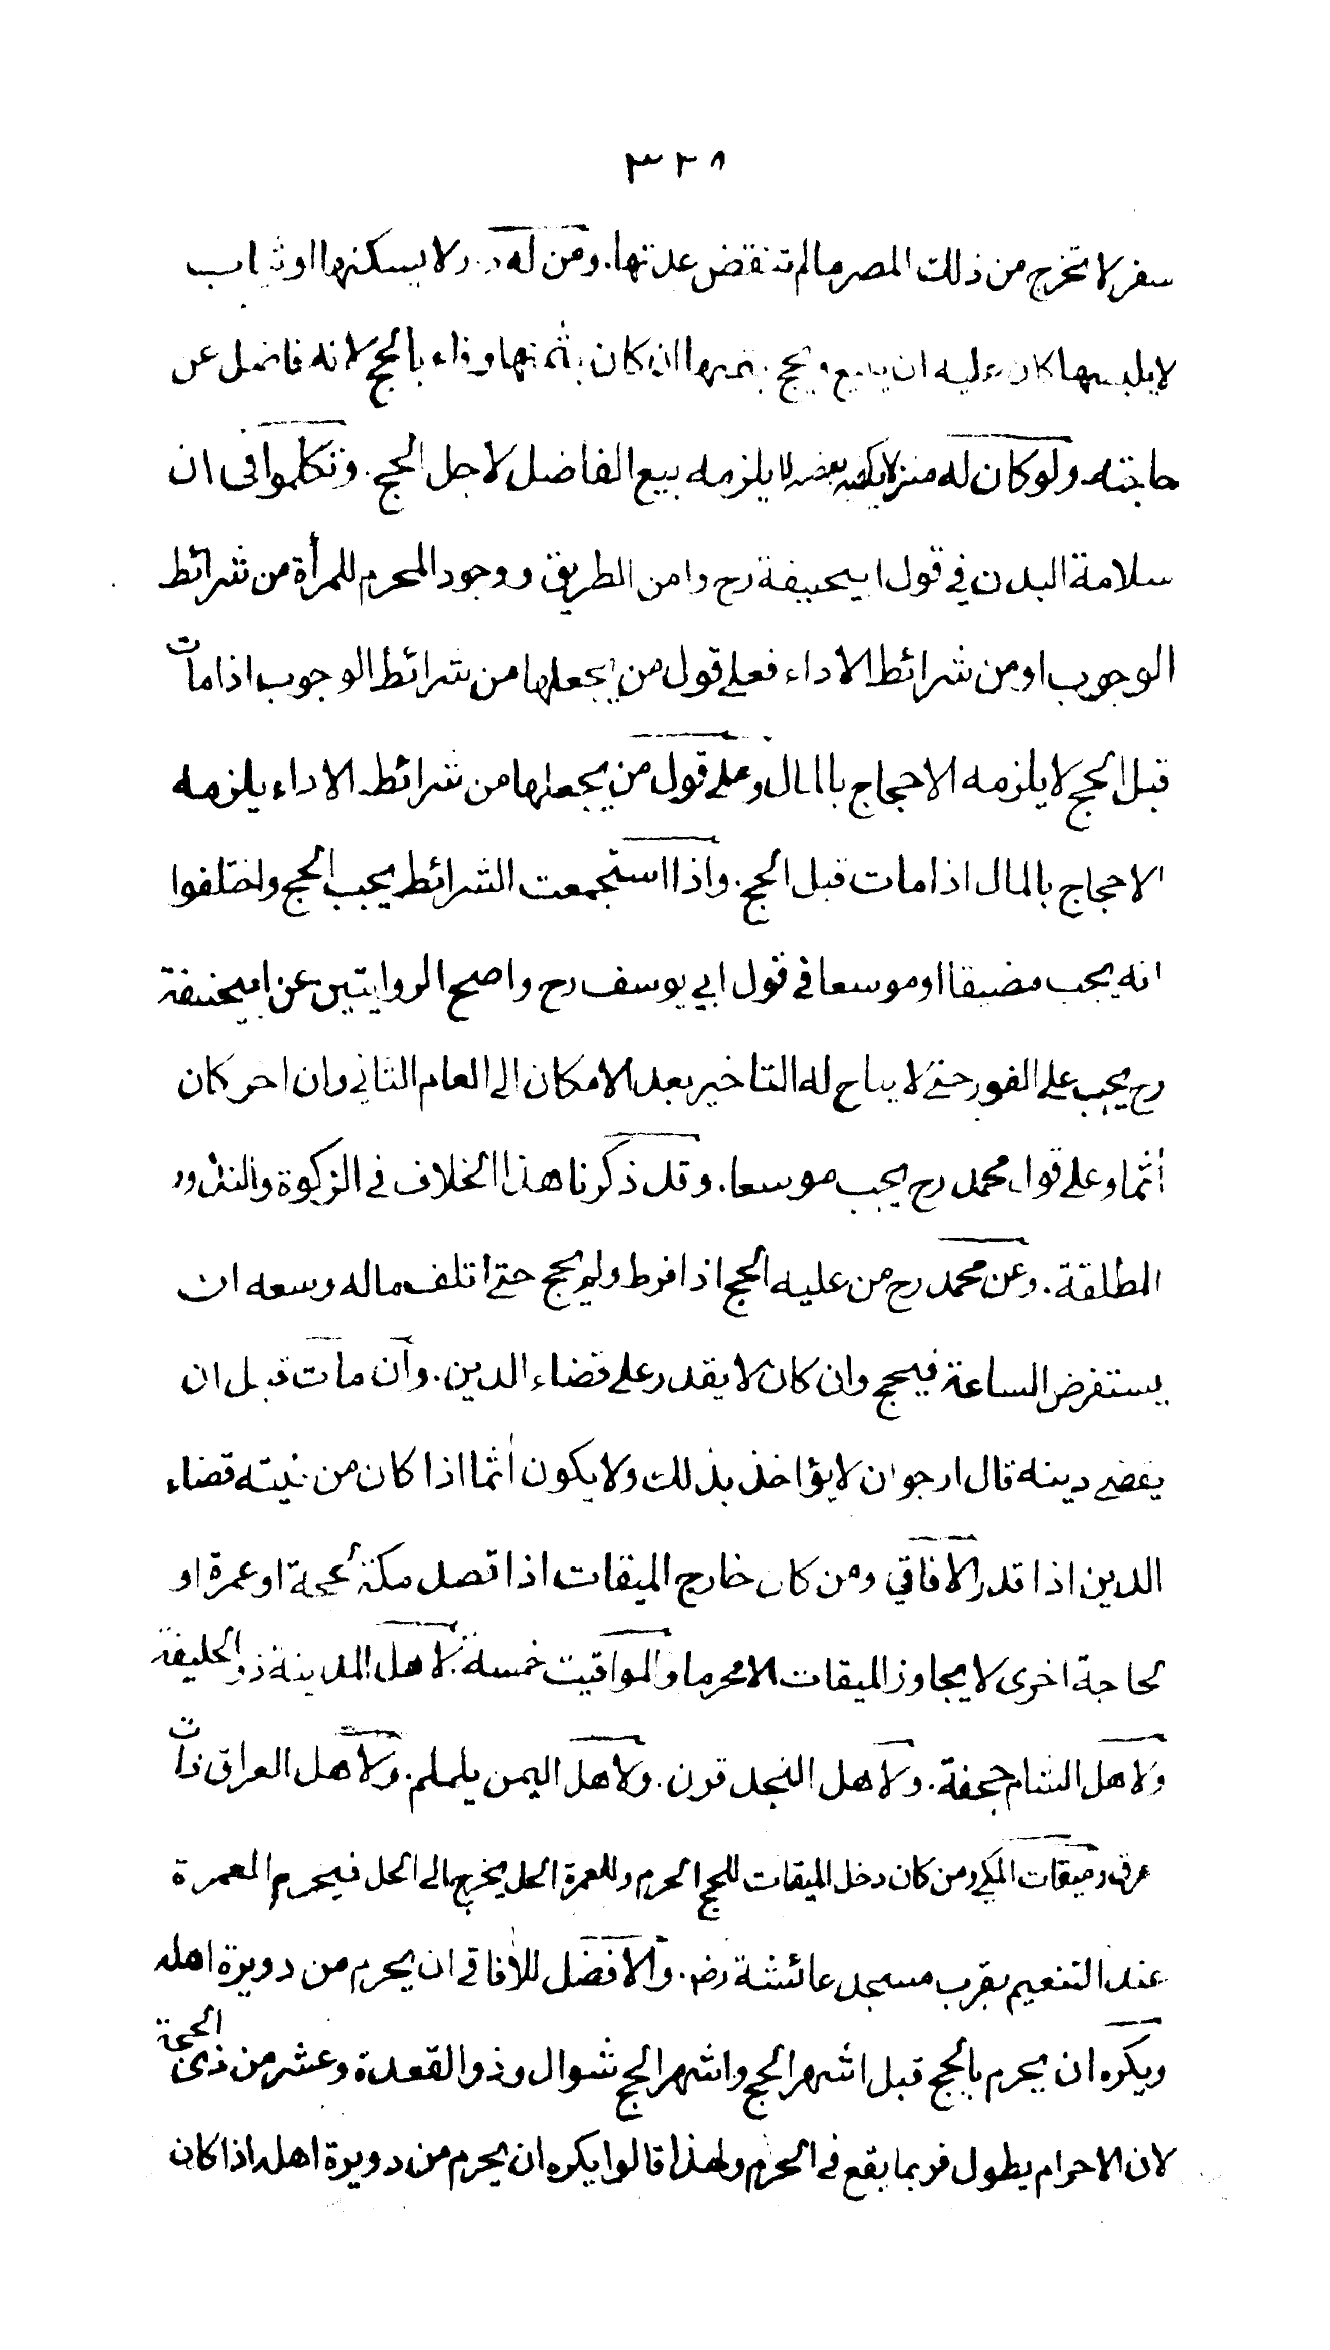 ٣٢٨
سفر لا تخرج من ذلك المصر مالم تنقض عدتها. ومن له دار ولا يسكنها او ثياب
لا يلبسها كان عليه ان يبيع ويحج بثمنها ان كان بثمنها وفاء بالحج لانه فاضل عن
حاجته. ولو كان له منزل يكفيه بعضه لا يلزمه بيع الفاضل لاجل الحج. وتكلموا فى ان
سلامة البدن في قول ابيحنيفة رح وامن الطريق ووجود المحرم للمرأة من شرائط
الوجوب او من شرائط الاداء فعلى قول من يجعلها من شرائط الوجوب اذا مات
قبل الحج لا يلزمه الاحجاج بالمال وعلى قول من يجعلها من شرائط الاداء يلزمه
الاحجاج بالمال اذا مات قبل الحج. واذا استجمعت الشرائط يجب الحج واختلفوا
انه يجب مضيقا او موسعا في قول ابي يوسف رح واصح الروايتين عن ابيحنيفة
رح يجب على الفور حتى لا يباح له التاخير بعد الامكان الى العام الثاني وان اخر كان
أثما وعلى قول محمد رح يجب موسعا. وقد ذكرنا هذا الخلاف في الزكوة والنذور
المطلقة. وعن محمد رح من عليه الحج اذا فرط ولم يحج حتى اتلف ماله وسعه ان
يستقرض الساعة فيحج وان كان لا يقدر على قضاء الدين. وان مات قبل ان
يقضى دينه قال ارجو ان لا يؤاخذ بذلك ولا يكون أثما اذا كان من نيته قضاء
الدين اذا قدر الافاقي ومن كان خارج الميقات اذا قصد مكة لحجة او عمرة او
لحاجة اخرى لا يجاوز الميقات الا محرما والمواقيت خمسة. لاهل المدينة ذو الحليفة
ولاهل الشام جحفة. ولاهل النجد قرن. ولاهل اليمن يلملم. ولاهل العراق ذات
عرق وميقات المكي ومن كان دخل الميقات للحج الحرم وللعمرة الحل يخرج الى الحل فيحرم العمرة
عند التنعيم بقرب مسجد عائشة رض. والافضل للأفاقي ان يحرم من دويرة اهله
ويكره ان يحرم بالحج قبل اشهر الحج واشهر الحج شوال وذو القعدة وعشر من ذى الحجة
لان الاحرام يطول فربما يقع في الحرم ولهذا قالوا يكره ان يحرم من دويرة اهله اذا كان